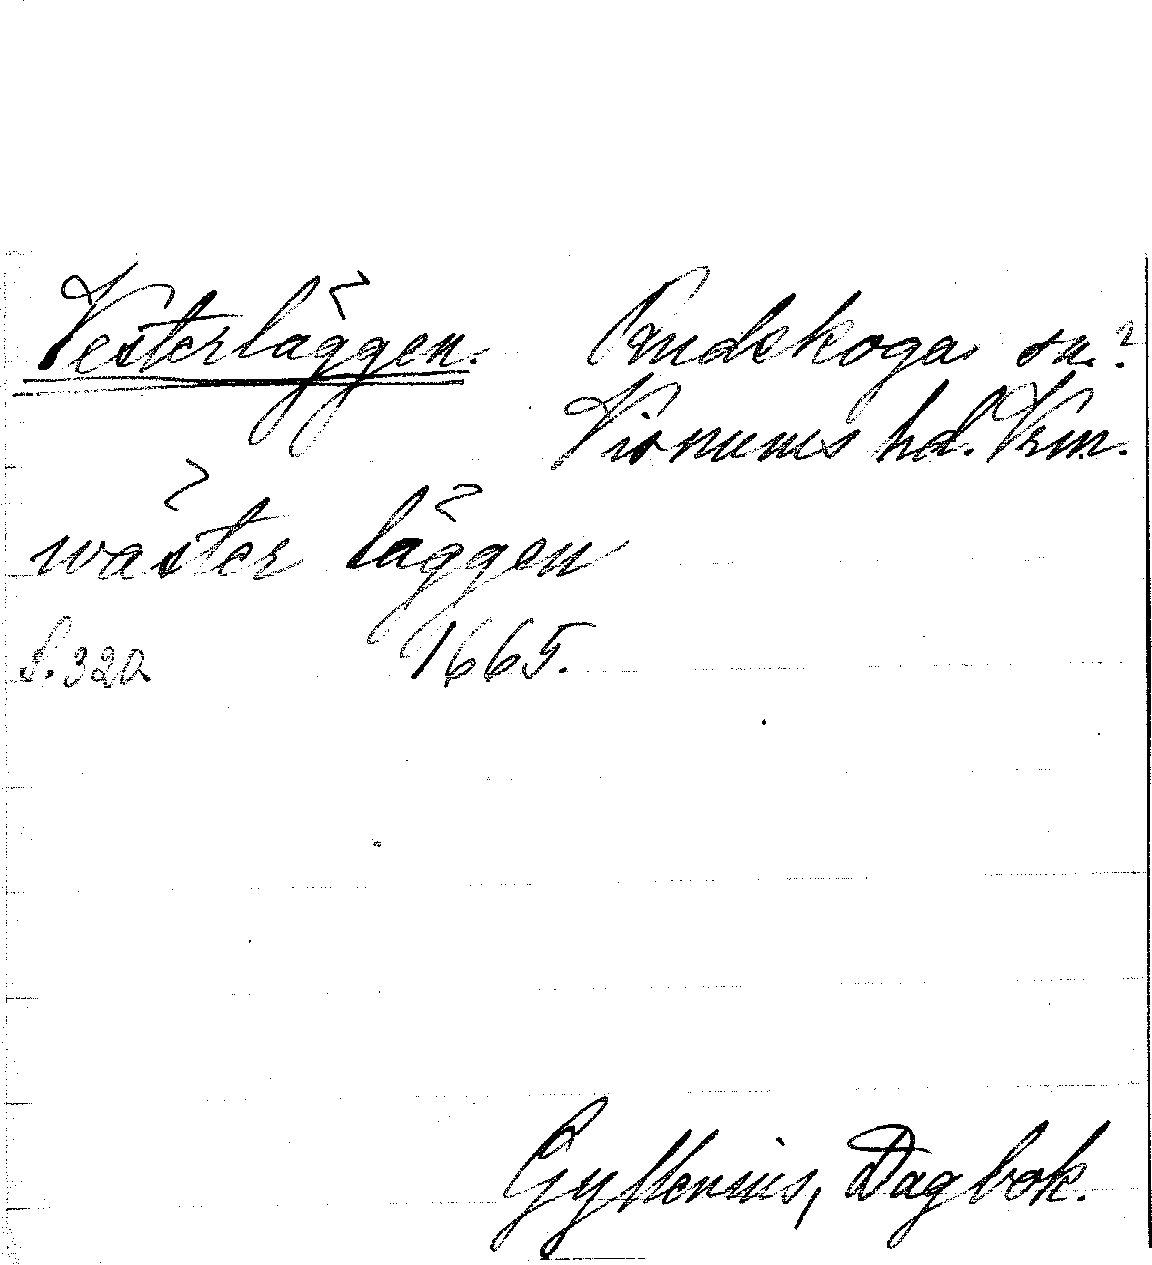 Vesterläggen. Rudskoga sn.?
Visnums hd. Vrm.
wäster läggen
S. 320. 1665.
Gyllenius, Dagbok.